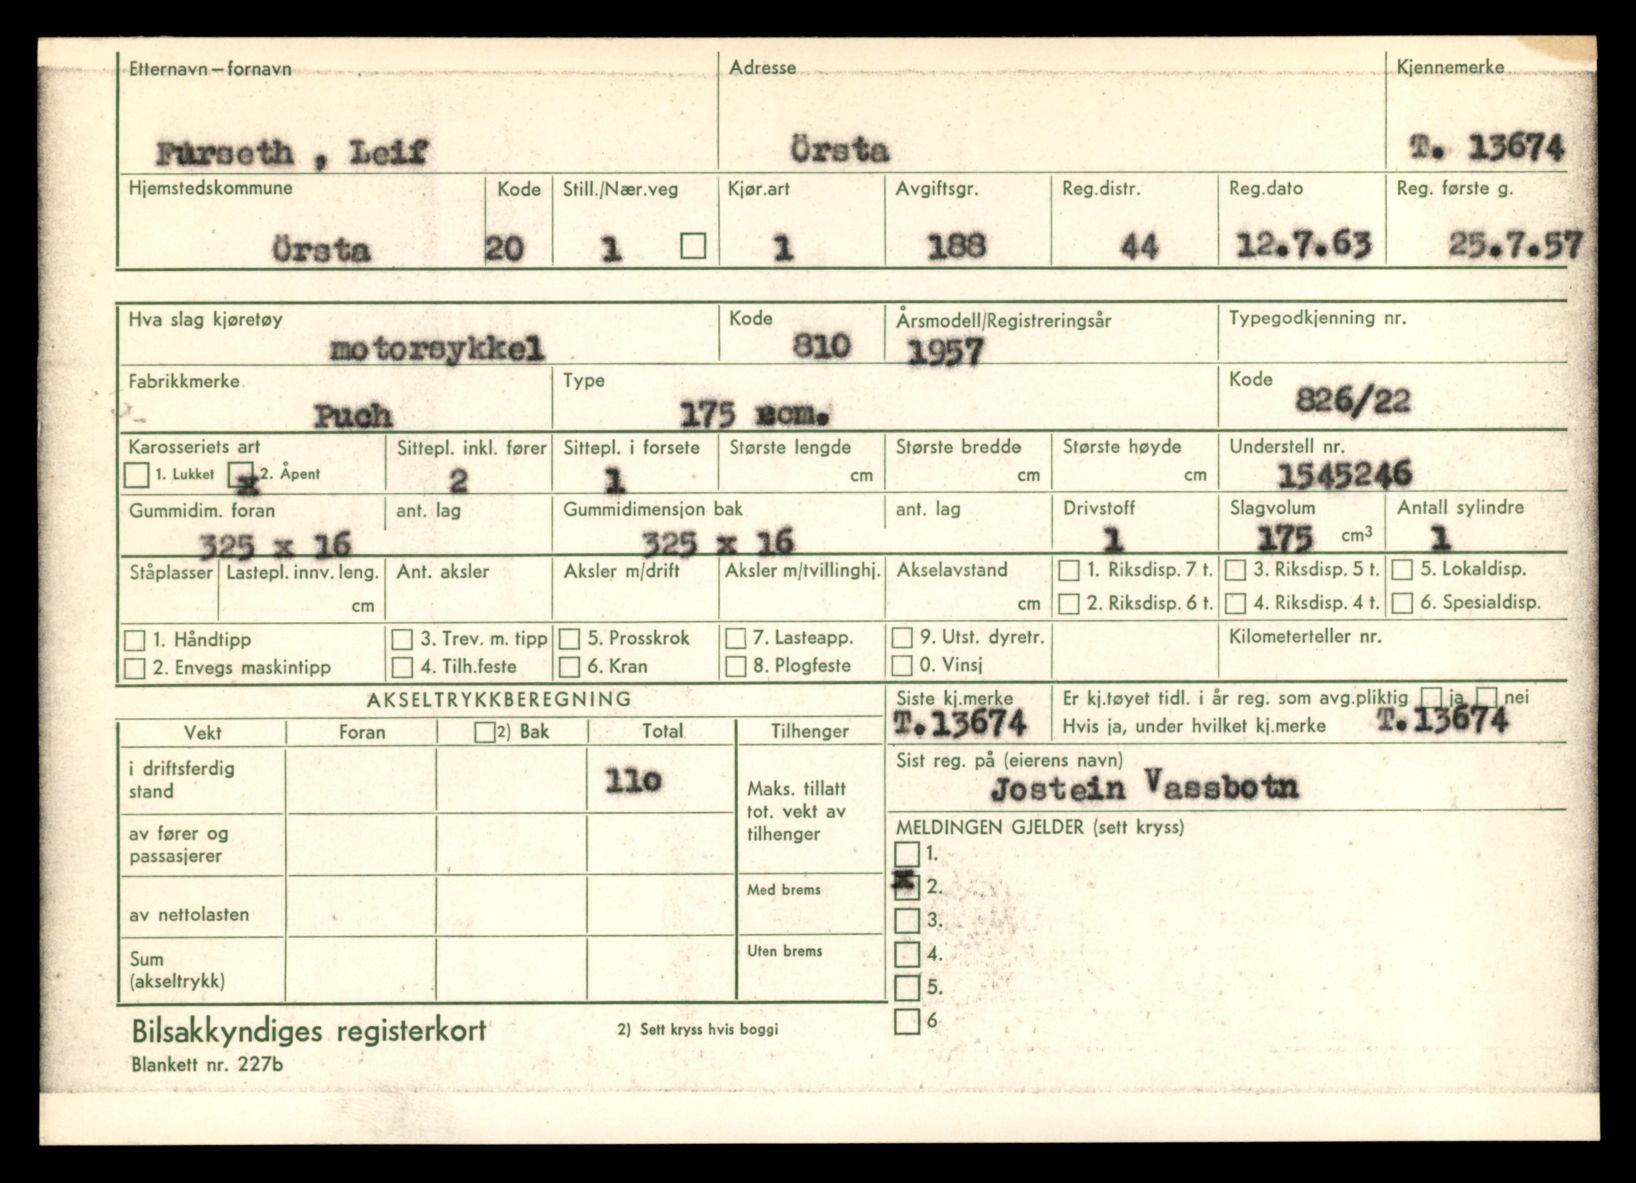 Etternavn–fornavn Adresse Kjennemerke
Furseth , Leif Örsta T. 13674
Hjemstedskommune Kode Still./Nær.veg Kjør.art Avgiftsgr. Reg.distr. Reg.dato Reg. første g.
Örsta 20 1 1 188 44 12.7.63 25.7.57
Hva slag kjøretøy Kode Årsmodell/Registreringsår Typegodkjenning nr.
motorsykkel 810 1957
Fabrikkmerke Type Kode
Puch 175 ccm. 826/22
Karosseriets art Sittepl. inkl. fører Sittepl. i forsete Største lengde Største bredde Største høyde Understell nr.
1. Lukket x 2. Åpent 2 1 cm cm cm 1545246
Gummidim. foran ant. lag Gummidimensjon bak ant. lag Drivstoff Slagvolum Antall sylindre
325 x 16 325 x 16 1 175 cm³ 1
Ståplasser Lastepl. innv. leng. Ant. aksler Aksler m/drift Aksler m/tvillinghj. Akselavstand 1. Riksdisp. 7 t. 3. Riksdisp. 5 t. 5. Lokaldisp.
cm cm 2. Riksdisp. 6 t. 4. Riksdisp. 4 t. 6. Spesialdisp.
1. Håndtipp 3. Trev. m. tipp 5. Prosskrok 7. Lasteapp. 9. Utst. dyretr. Kilometerteller nr.
2. Envegs maskintipp 4. Tilh.feste 6. Kran 8. Plogfeste 0. Vinsj
AKSELTRYKKBEREGNING Siste kj.merke Er kj.tøyet tidl. i år reg. som avg.pliktig ja nei
T.13674 Hvis ja, under hvilket kj.merke T.13674
Vekt Foran 2) Bak Total Tilhenger
Sist reg. på (eierens navn)
Jostein Vassbotn
i driftsferdig
stand 110
Maks. tillatt
tot. vekt av
tilhenger
av fører og
passasjerer
MELDINGEN GJELDER (sett kryss)
1.
x 2.
3.
4.
5.
6
Med brems
av nettolasten
Uten brems
Sum
(akseltrykk)
Bilsakkyndiges registerkort 2) Sett kryss hvis boggi
Blankett nr. 227b